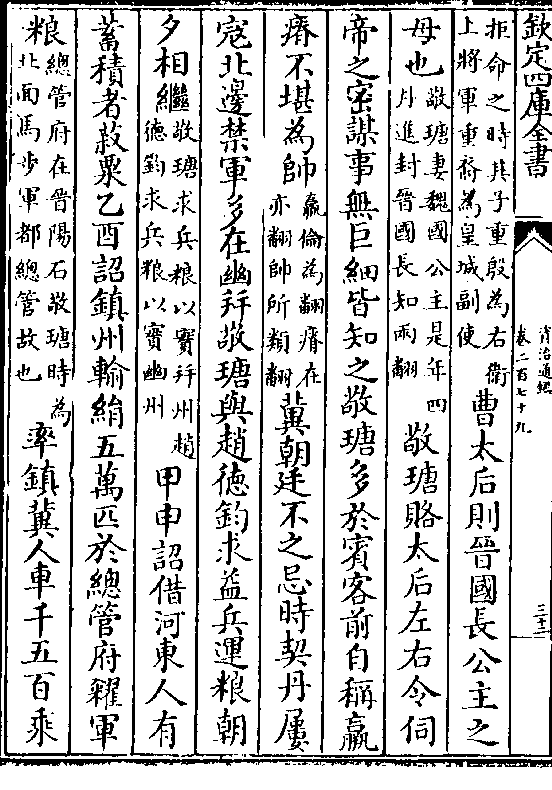 欽定四庫全書
資治通鑑
卷二百七十九
三十二
拒命之時其子重殷為右衛
上將軍重裔為皇城副使
曹太后則晉國長公主之
母也
敬瑭妻魏國公主是年四
月進封晉國長知兩翻
敬瑭賂太后左右令伺
帝之密謀事無巨細皆知之敬瑭多於賓客前自稱羸
瘠不堪為帥
羸倫為翻瘠在
亦翻帥所類翻
冀朝廷不之忌時契丹屢
寇北邊禁軍多在幽并敬瑭與趙德鈞求益兵運粮朝
夕相繼
敬瑭求兵粮以實并州趙
德鈞求兵粮以實幽州
甲申詔借河東人有
蓄積者菽粟乙酉詔鎮州輸絹五萬匹於總管府糴軍
粮
總管府在晉陽石敬瑭時為
北面馬步軍都總管故也
率鎮冀人車千五百乘